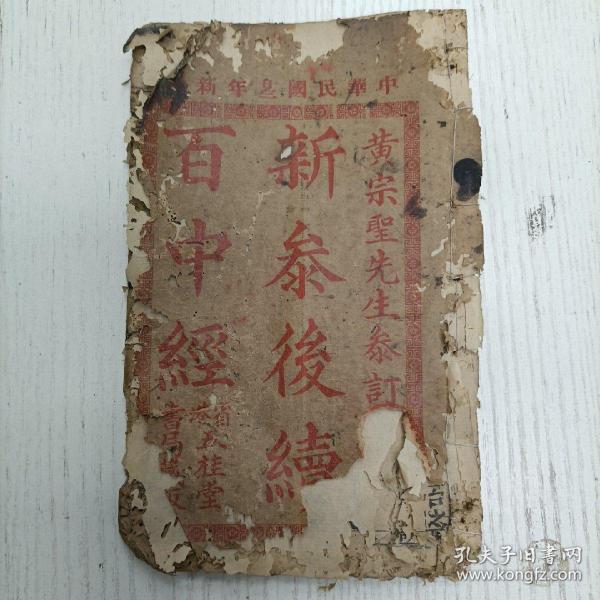 中華民國年新
黃宗聖先生叅訂
新叅後續
百中經
省城五桂堂
書局
孔夫子旧书网
www.kongfz.com